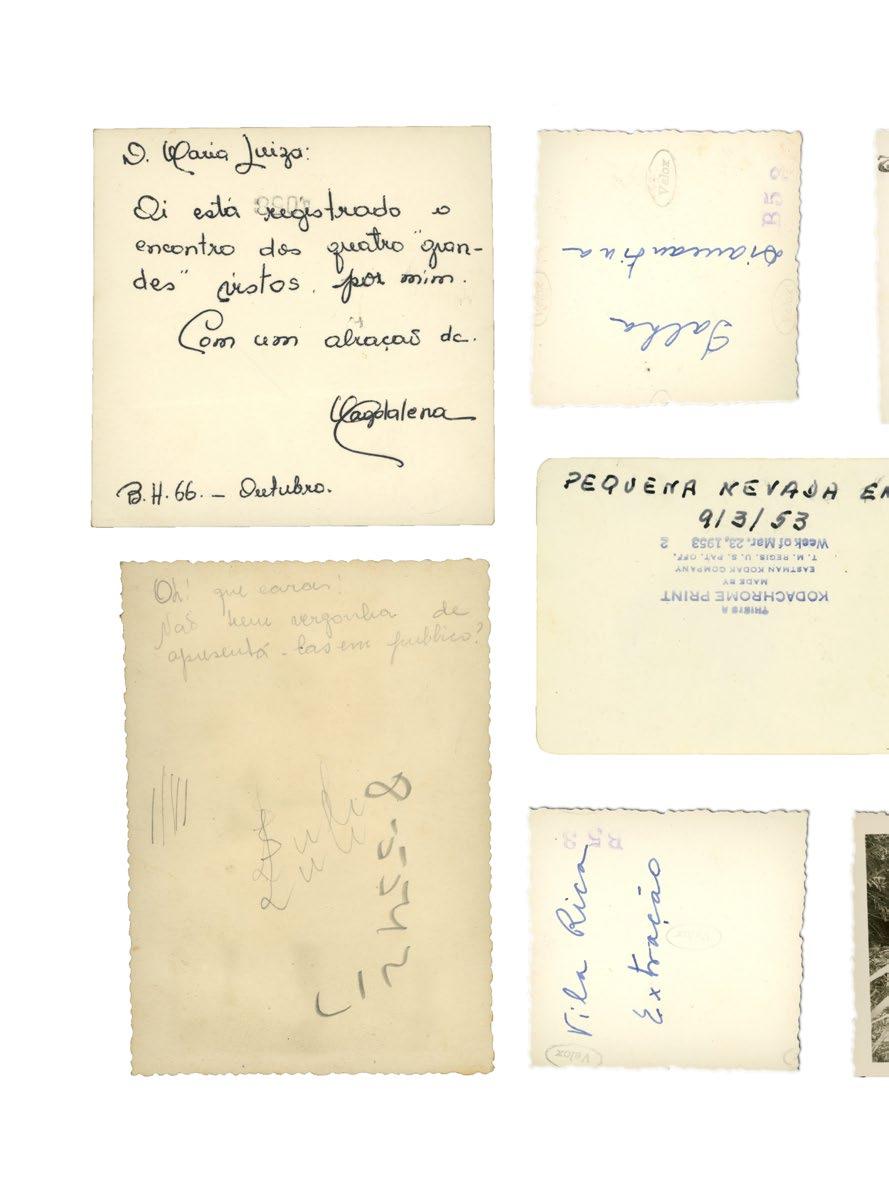 D. Maria Luiza:
Qi está registrado o
encontro dos quatro "gran-
des" vistos por mim.
Com um abração da.
Magdalena
B.H. 66. – Outubro.
Velox
B53
Diamantina
Salha
PEQUENA NEVADA EM
9/3/53
THIS IS A
KODACHROME PRINT
MADE BY
EASTMAN KODAK COMPANY
T. M. REGIS. U. S. PAT. OFF.
Week of Mar. 23, 1953
2
Oh! que caras!
Não tem vergonha de
apresentá-las em publico?
Vila Rica
Extração
Velox
Velox